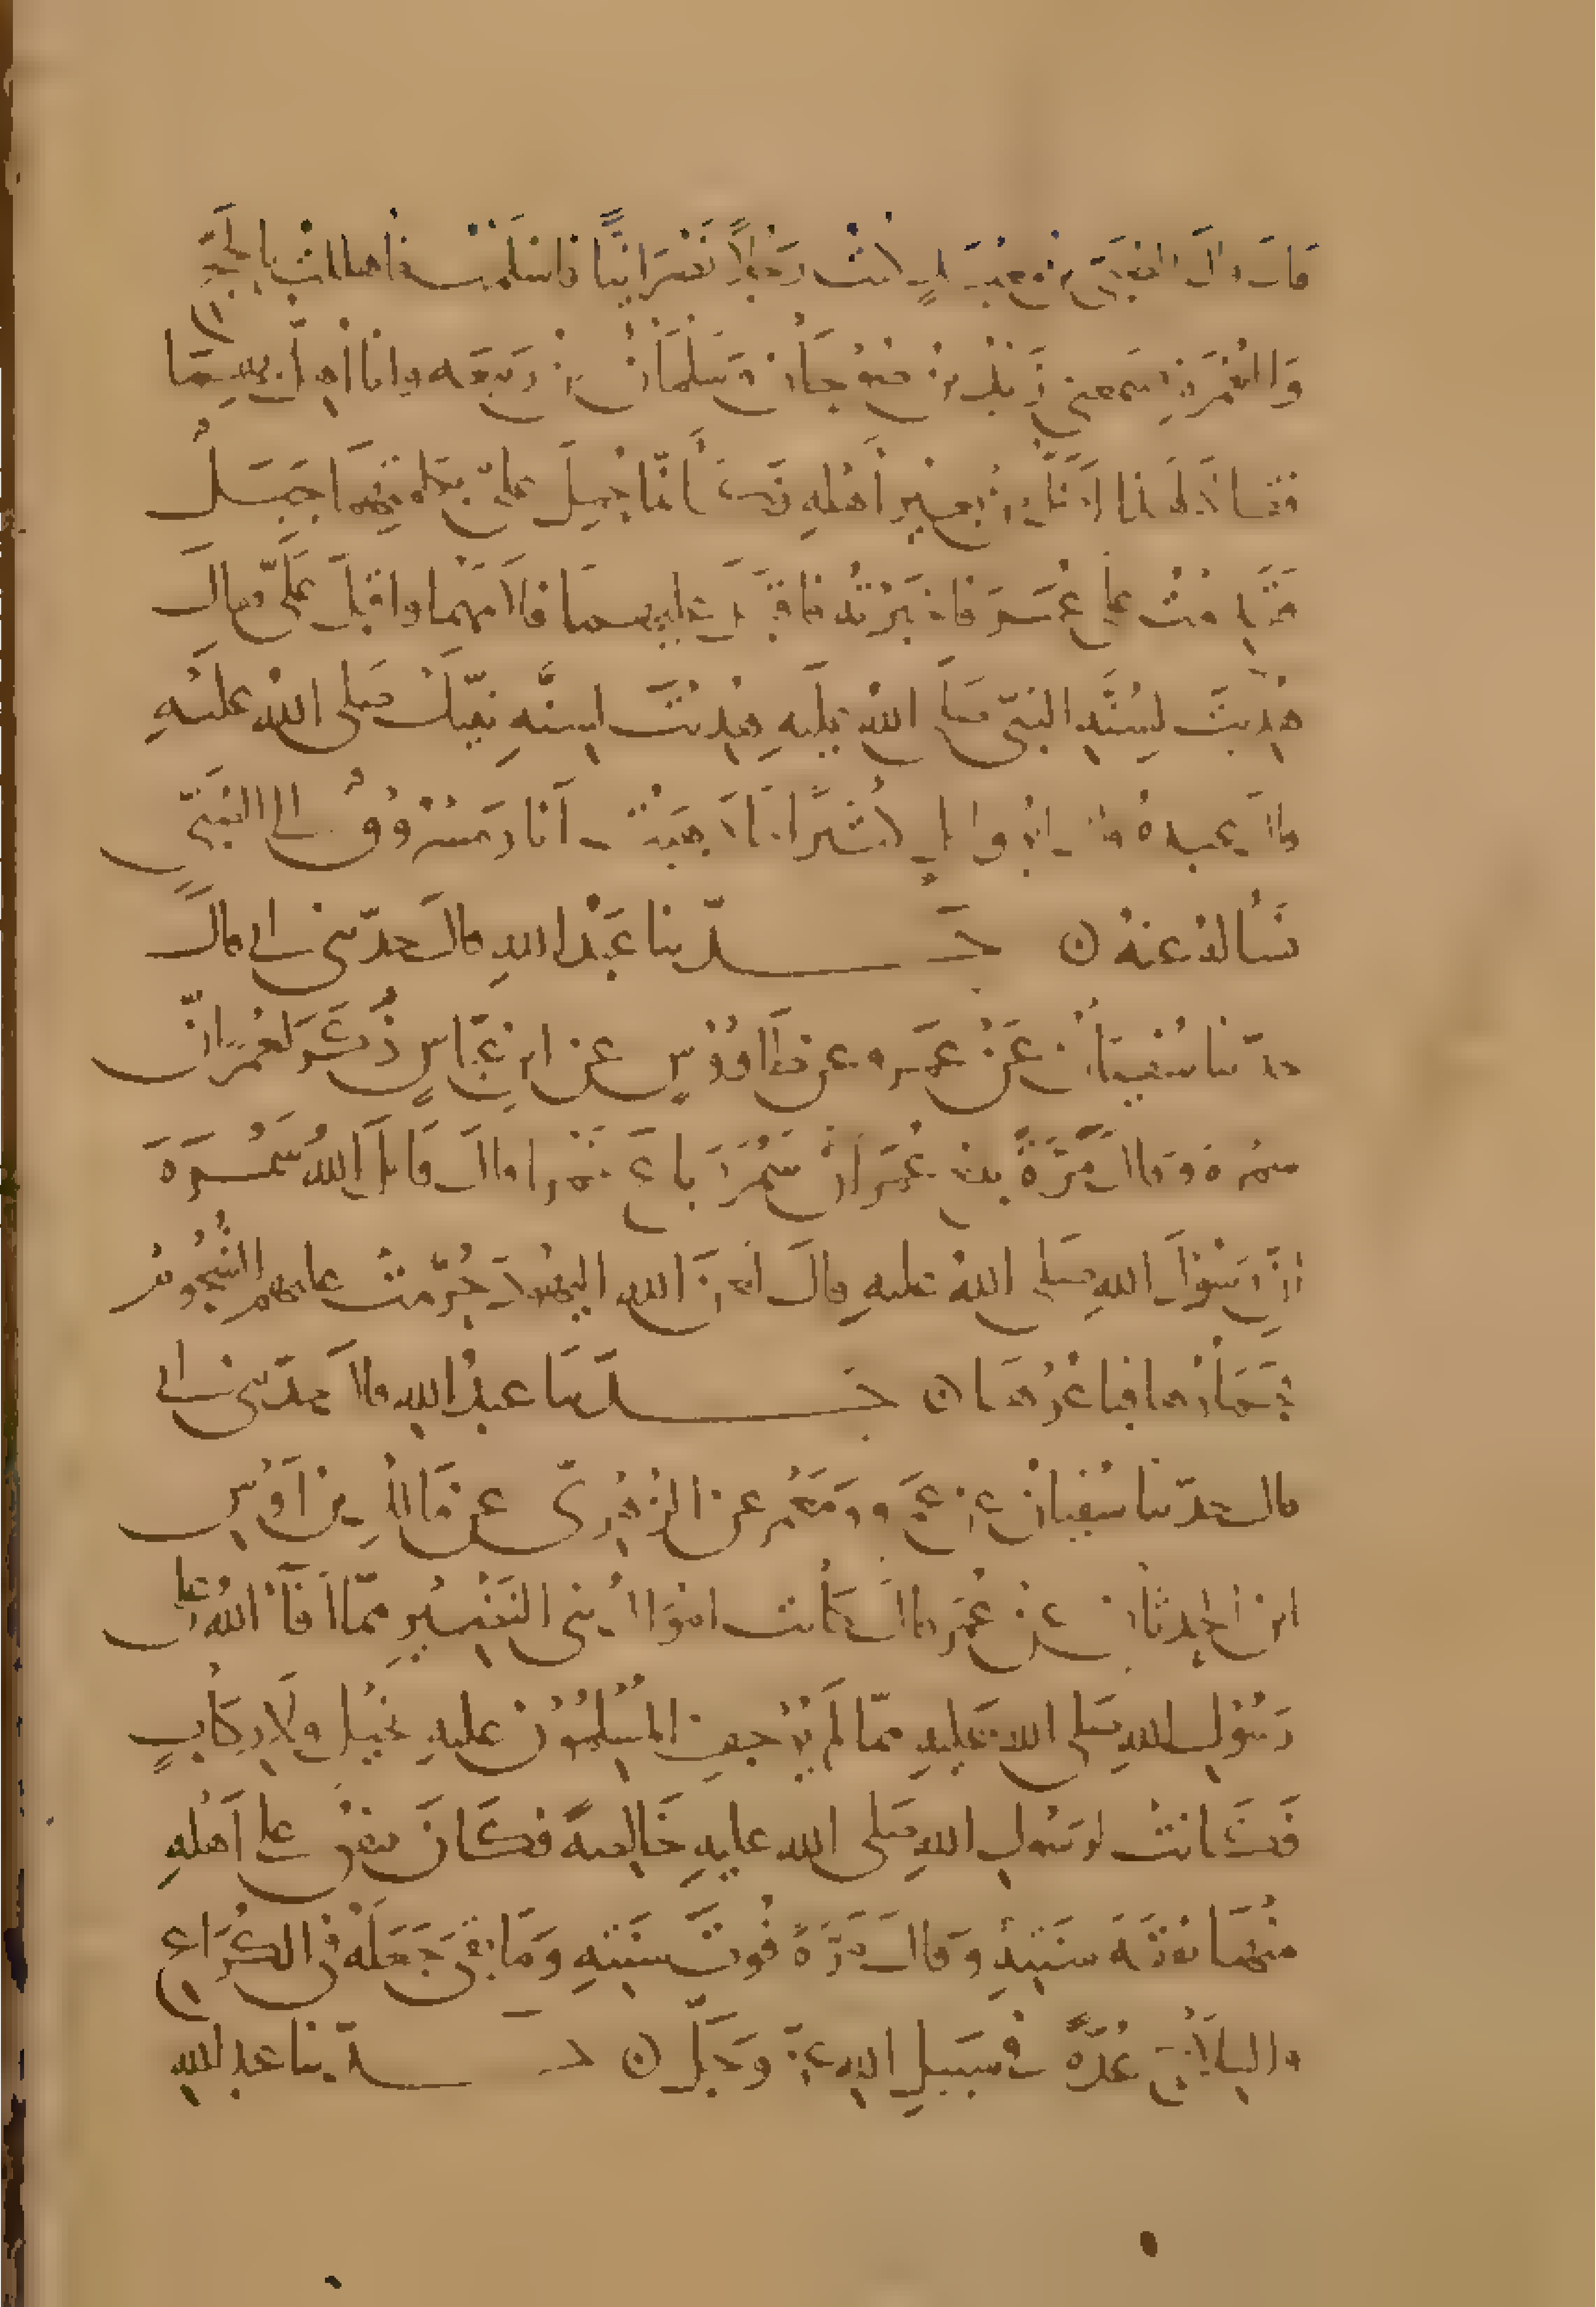 قال قال الصُّبَيّ بن معبد كنت رَجُلًا نَصْرَانِيًّا فاسْلَمْت فاهللتُ بالحَجّ
وَالعُمْرَةِ فسَمعني زَيْدُ بنُ صُوْحَان وَسَلْمَانُ بن رَبيعَه وانا اُهِلُّ بهِمَا
فقالا لهذا اَضَلُّ من بعيرِ أَهْلِهِ فكَأنّما حُمِلَ عليّ بكلمتِهِمَا جَبَلٌ
فقَدِمْتُ على عُمَر فاخبَرْتُه فاقبَلَ عليهِما فلامَهُما واقبَلَ عَلَيّ فقال
هُدِيتَ لِسُنَّةِ النبيّ صَلى اللهُ عليه هُدِيتَ لسنّهِ نبيّكَ صَلى اللهُ عليْهِ
قال عبدهُ قال ابُو وائلٍ كثيرًا مَا ذهَبْتُ أنا وَمَسْرُوْقٌ الى الصُّبَيّ
نسْألهُ عنهُ ن حَـدّثنا عَبْدُ اللهِ قال حدّثنى ابى قال
حدّثنا سُفيَانُ عَنْ عَمرو عن طَاوُوْسٍ عن ابنِ عَبّاسٍ ذُكِرَ لعُمَرَ انّ
سمُرهَ وَقال مَرّةً بلغ عُمَرَ انّ سَمُرَةَ باعَ خَمْرا قال قَاتلَ اللهُ سَمُرَةَ
انّ رَسُوْلَ اللهِ صَلى اللهُ عليهِ قال لعَنَ الله اليهُودَ حُرّمَتْ عليهم الشُّحُومُ
فجَمَلُوْهَا فباعُوْهَا ن حَـدّثنَا عبدُ الله قال حدّثنى ابى
قال حدّثنا سُفيانُ عن عَمرٍو وَمَعْمرٍ عن الزُّهْرِىّ عن مَالكِ بنِ اَوْسِ
ابن الحدثان عنْ عُمَر قال كانت امْوَالُ بنى النَضِيْرِ ممّا اَفَاءَ اللهُ على
رَسُوْلِ اللهِ صَلى الله عَليهِ ممّا لَم يُوْجِفِ المُسْلِمُوْن عليهِ بخَيْلٍ ولَا رِكَابٍ
فَكَانتْ لرَسُولِ اللهِ صَلى الله عليهِ خَالِصهً فكَانَ ينفقُ على اَهْلهِ
منْهَا نفَقهَ سَنَتِهِ وَقال مَرَّهً قُوتَ سَنَتِهِ وَمَا بقىَ جَعَلَهُ فى الكُرَاعِ
والسلاحِ عُدّهً فى سَبيلِ الله عزّ وَجَلّ ن حَـدّثنا عبد الله